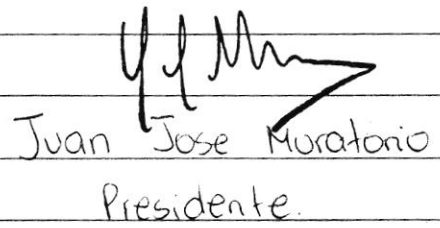 Juan Jose Muratorio
Presidente.